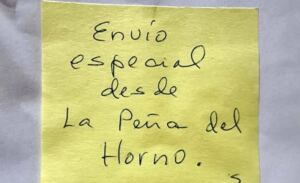 Envío
especial
desde
La Peña del
Horno.